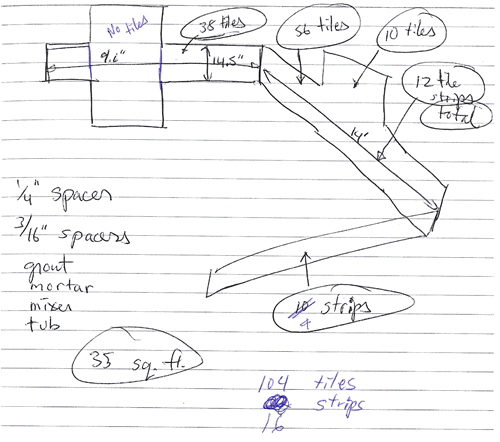 No tiles
38 tiles
56 tiles
10 tiles
14.5"
12 tile
strips
total
14'
1/4" spacer
3/16" spacers
grout
mortar
mixer
tub
strips
4
35 sq. ft.
104 tiles
strips
16